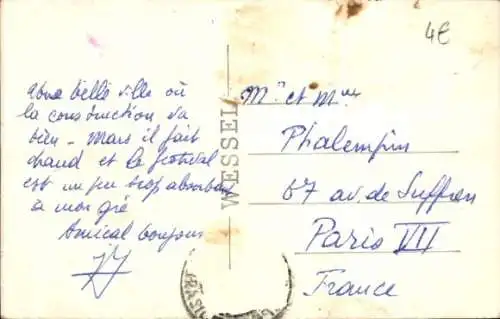 4€
une belle ville où
la construction va
bien - Mais il fait
chaud et le festival
est un peu trop absorbant
à mon gré
Amical bonjour
WESSEL
Mr et Mme
Phalempin
67 av. de Suffren
Paris VII
France